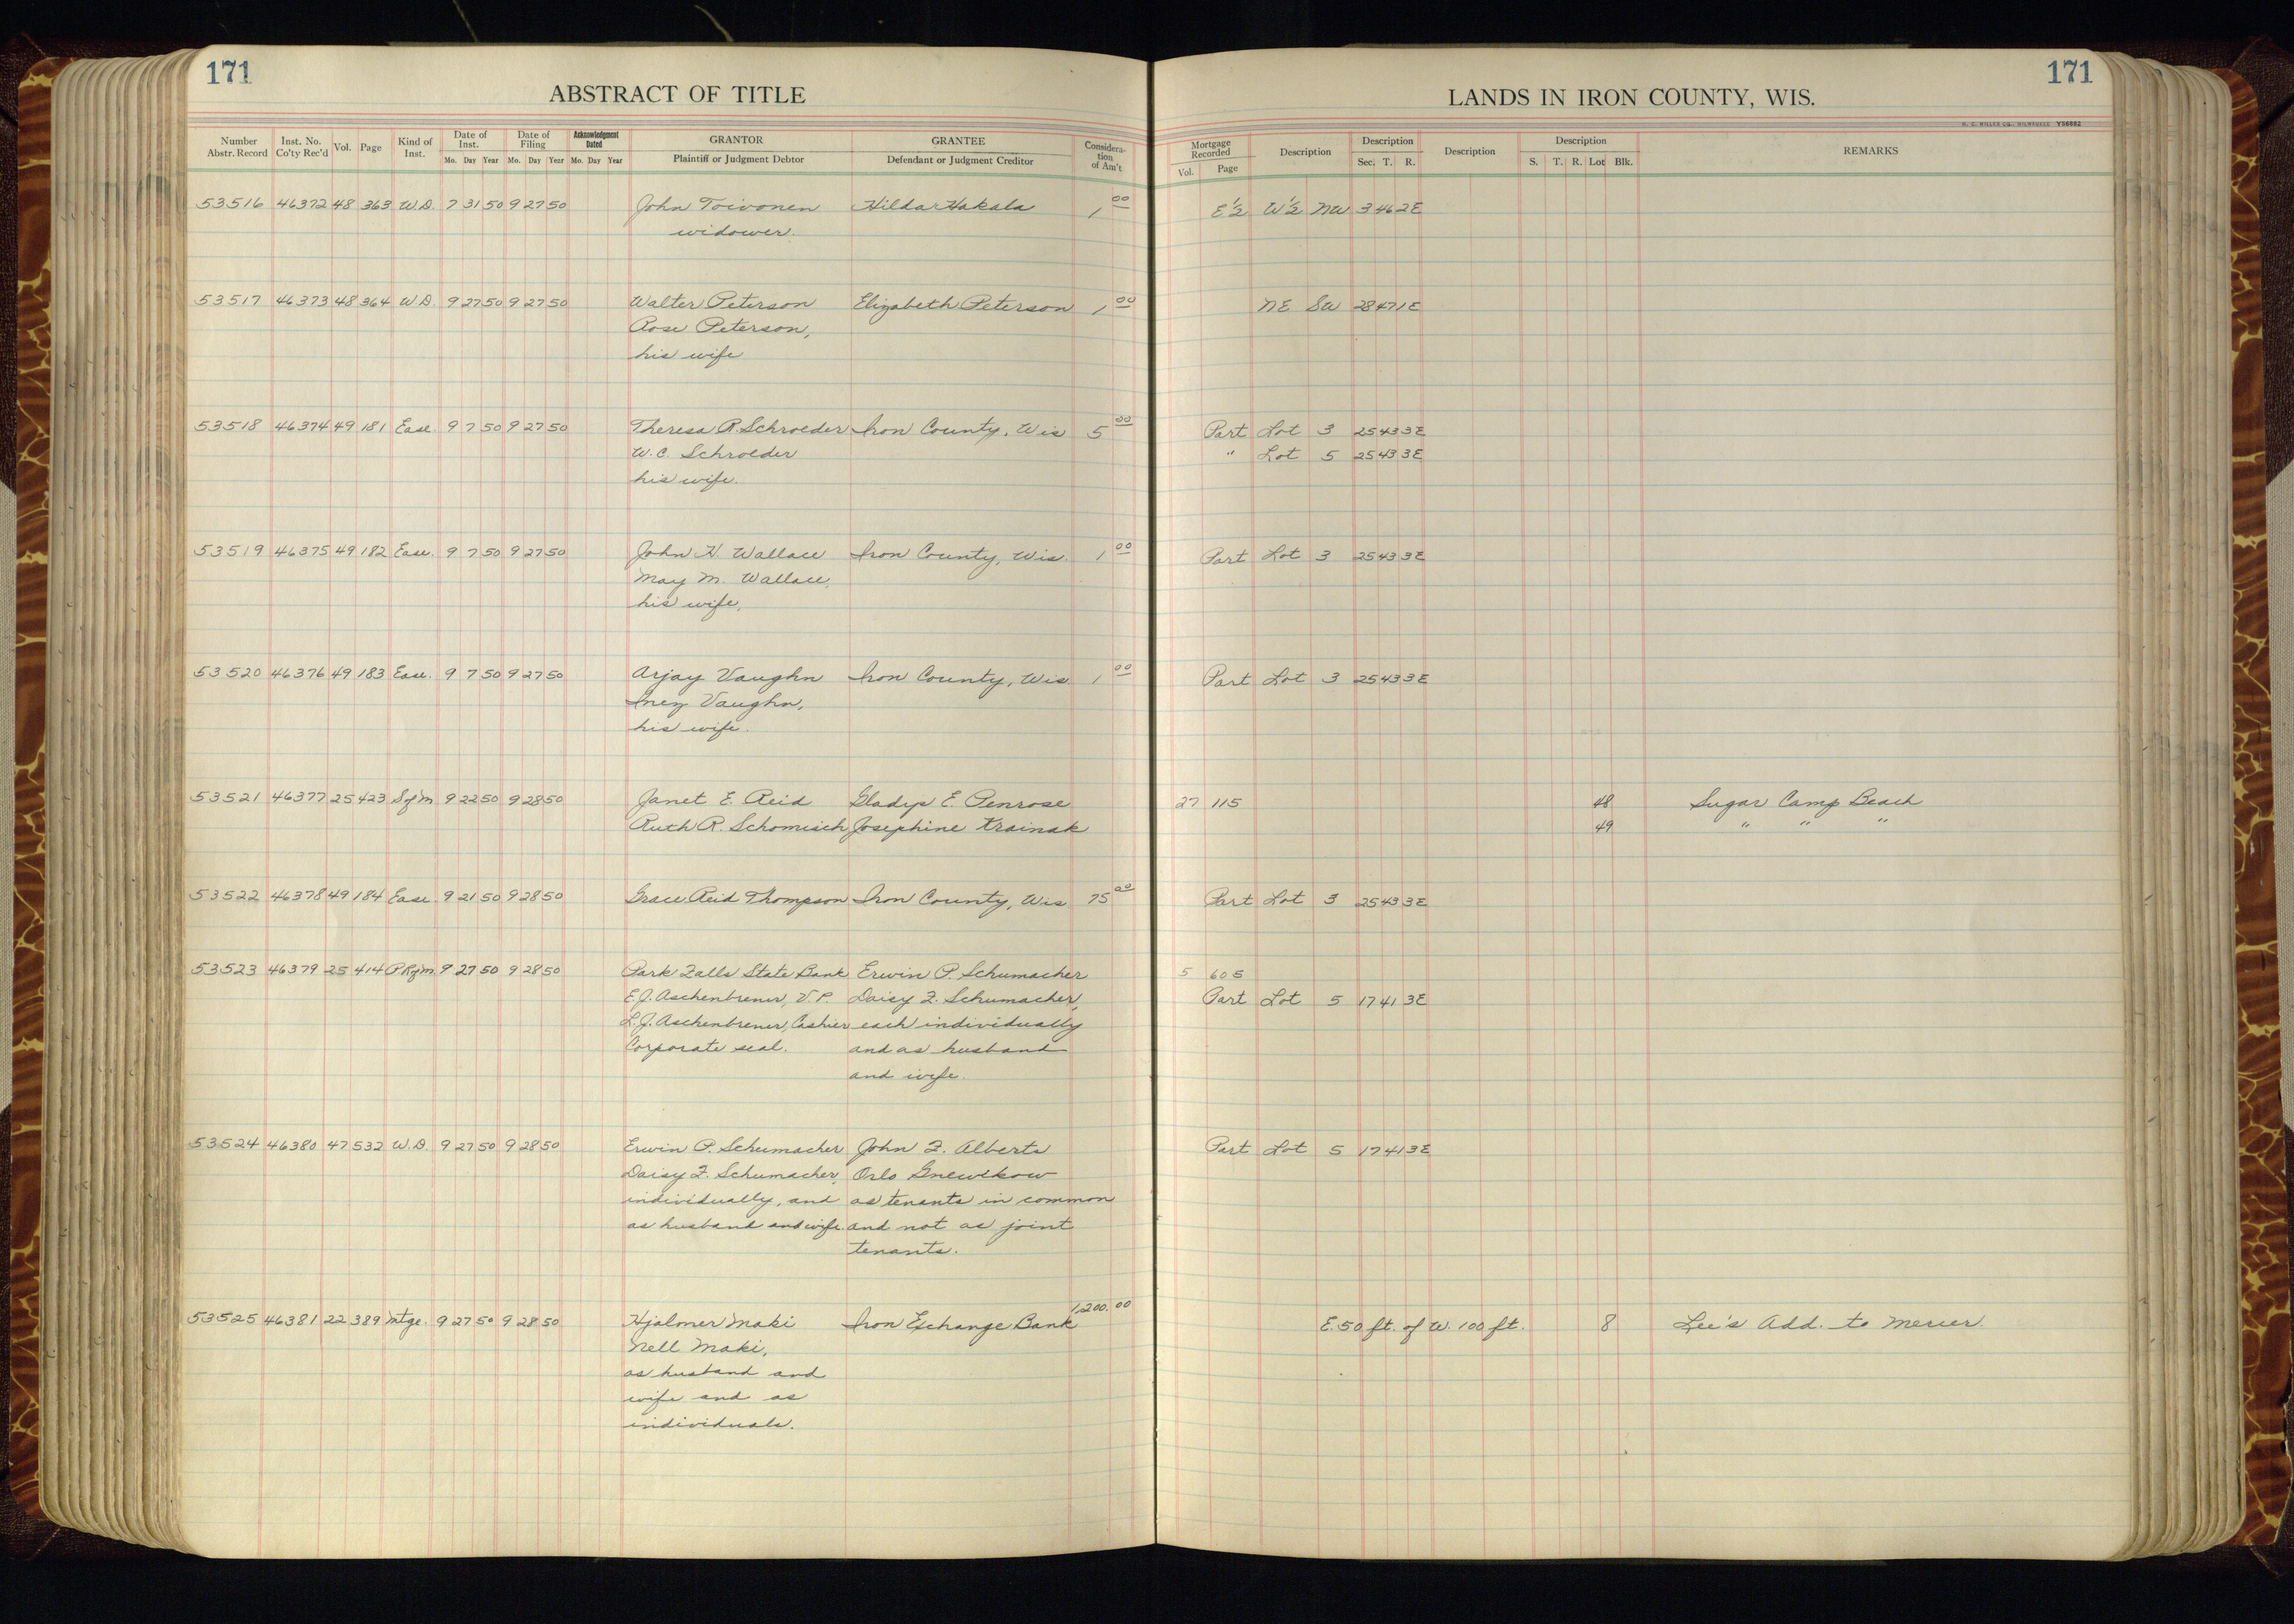 171
ABSTRACT OF TITLE
Number Abstr. Record Inst. No. Co'ty Rec'd Vol. Page Kind of Inst. Date of Inst. Mo. Day Year Date of Filing Mo. Day Year Acknowledgment Dated Mo. Day Year GRANTOR Plaintiff or Judgment Debtor GRANTEE Defendant or Judgment Creditor Considera-tion of Am't
171
LANDS IN IRON COUNTY, WIS.
H. C. MILLER CO., MILWAUKEE Y56682
Mortgage Recorded Vol. Page Description Description Sec. T. R. Description Description S. T. R. Lot Blk. REMARKS
53516 46372 48 363 W.D. 7 31 50 9 27 50 John Toivonen Hilda Hakala 1 00 E½ W½ NW 3 46 2E
widower.
53517 46373 48 364 W.D. 9 27 50 9 27 50 Walter Peterson Elizabeth Peterson 1 00 NE SW 28 47 1E
Rose Peterson,
his wife
53518 46374 49 181 Ease. 9 7 50 9 27 50 Theresa R. Schroeder Iron County, Wis 5 00 Part Lot 3 25 43 3E
W.C. Schroeder " Lot 5 25 43 3E
his wife.
53519 46375 49 182 Ease. 9 7 50 9 27 50 John H. Wallace Iron County, Wis. 1 00 Part Lot 3 25 43 3E
May M. Wallace,
his wife,
53520 46376 49 183 Ease. 9 7 50 9 27 50 Arjay Vaughn Iron County, Wis. 1 00 Part Lot 3 25 43 3E
Inez Vaughn,
his wife.
53521 46377 25 423 Sf'm 9 22 50 9 28 50 Janet E. Reid Gladys E. Penrose 27 115 48 Sugar Camp Beach
Ruth R. Schomisch Josephine Krainak 49 " " "
53522 46378 49 184 Ease. 9 21 50 9 28 50 Grace Reid Thompson Iron County, Wis. 75 00 Part Lot 3 25 43 3E
53523 46379 25 414 P Rf'm. 9 27 50 9 28 50 Park Falls State Bank Erwin P. Schumacher 5 605
E.J. Aschenbrener, V.P. Daisy F. Schumacher, Part Lot 5 17 41 3E
L.J. Aschenbrener, Cashier each individually
Corporate seal. and as husband
and wife.
53524 46380 47 532 W.D. 9 27 50 9 28 50 Erwin P. Schumacher John F. Alberts Part Lot 5 17 41 3E
Daisy F. Schumacher, Orlo Gnewikow
individually, and as tenants in common
as husband and wife. and not as joint
tenants.
53525 46381 22 389 Mtge. 9 27 50 9 28 50 Hjalmer Maki Iron Exchange Bank 1,200.00 E. 50 ft. of W. 100 ft. 8 Lee's Add. to Mercer.
Nell Maki,
as husband and
wife and as
individuals.